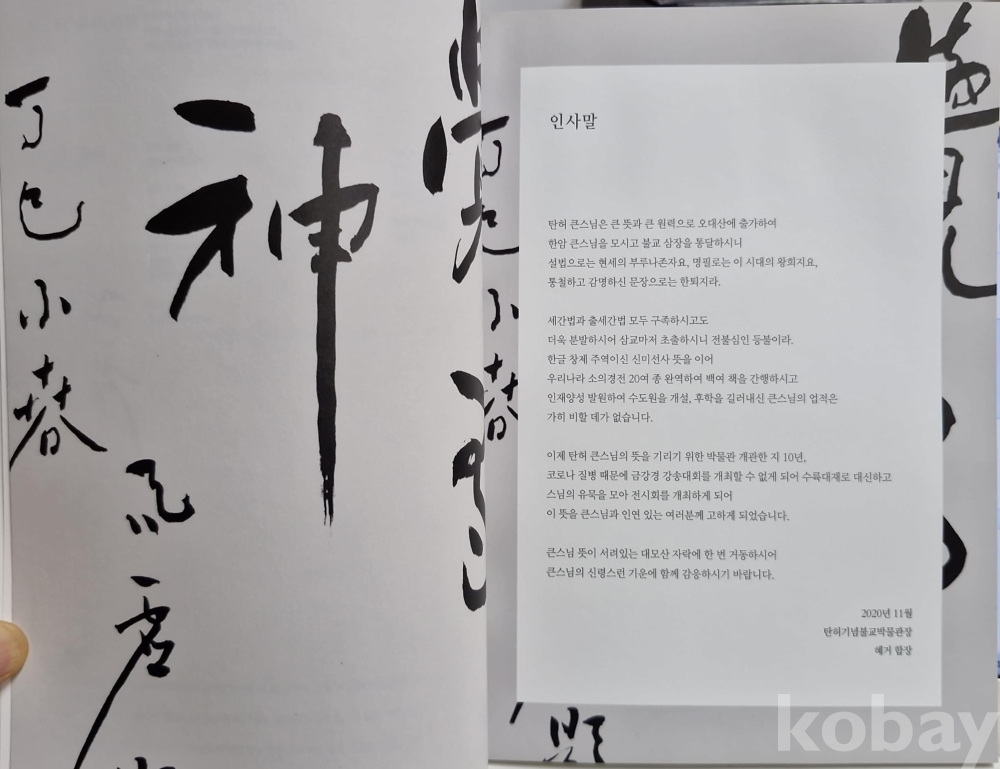 丁巳小春
神
인사말
탄허 큰스님은 큰 뜻과 큰 원력으로 오대산에 출가하여
한암 큰스님을 모시고 불교 삼장을 통달하시니
설법으로는 현세의 부루나존자요, 명필로는 이 시대의 왕희지요,
통철하고 감명하신 문장으로는 한퇴지라.
세간법과 출세간법 모두 구족하시고도
더욱 분발하시어 삼교마저 초출하시니 전불심인 등불이라.
한글 창제 주역이신 신미선사 뜻을 이어
우리나라 소의경전 20여 종 완역하여 백여 책을 간행하시고
인재양성 발원하여 수도원을 개설, 후학을 길러내신 큰스님의 업적은
가히 비할 데가 없습니다.
이제 탄허 큰스님의 뜻을 기리기 위한 박물관 개관한 지 10년,
코로나 질병 때문에 금강경 강송대회를 개최할 수 없게 되어 수륙대재로 대신하고
스님의 유묵을 모아 전시회를 개최하게 되어
이 뜻을 큰스님과 인연 있는 여러분께 고하게 되었습니다.
큰스님 뜻이 서려있는 대모산 자락에 한 번 거동하시어
큰스님의 신령스런 기운에 함께 감응하시기 바랍니다.
2020년 11월
탄허기념불교박물관장
혜거 합장
kobay